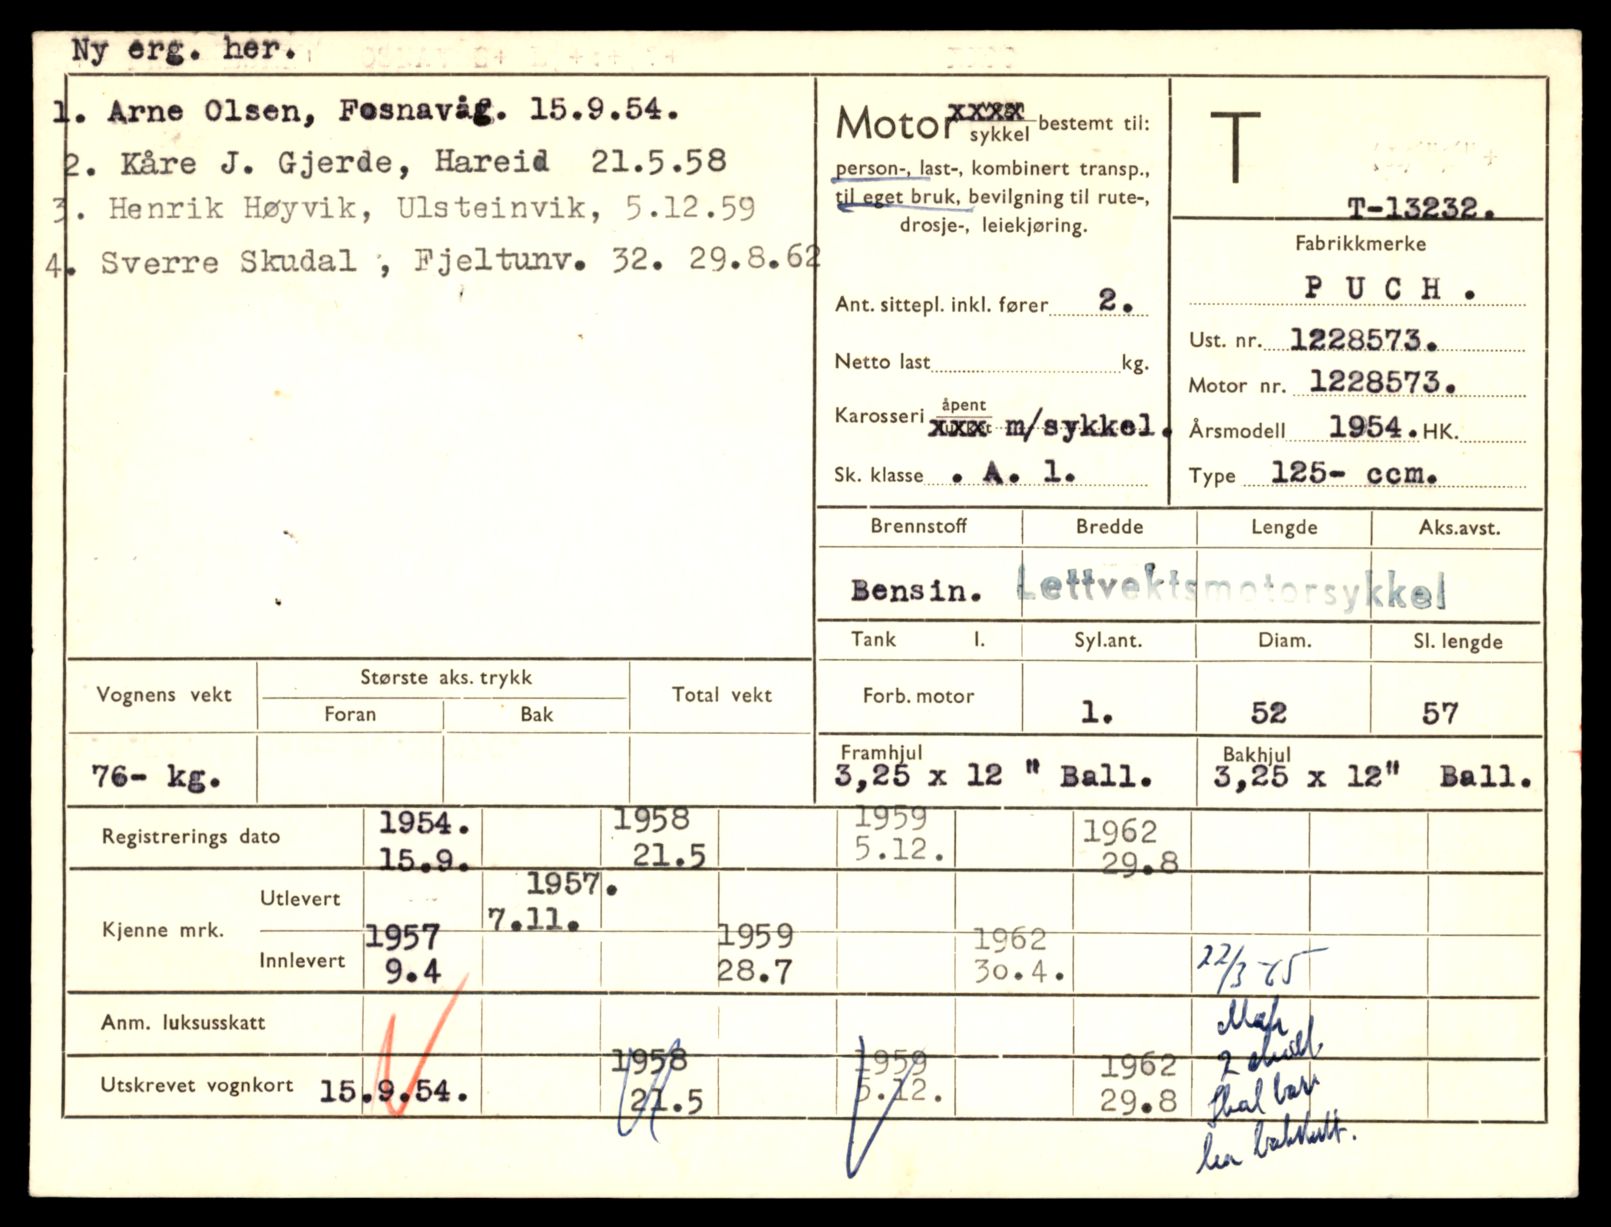 Ny erg. her.
1. Arne Olsen, Fosnavåg. 15.9.54.
2. Kåre J. Gjerde, Hareid 21.5.58
3. Henrik Høyvik, Ulsteinvik, 5.12.59
4. Sverre Skudal , Fjeltunv. 32. 29.8.62
Motor xxxx sykkel bestemt til:
person-, last-, kombinert transp.,
til eget bruk, bevilgning til rute-,
drosje-, leiekjøring.
Ant. sittepl. inkl. fører 2.
Netto last kg.
Karosseri åpent xxx m/sykkel.
Sk. klasse . A. 1.
T
T-13232.
Fabrikkmerke
P U C H .
Ust. nr. 1228573.
Motor nr. 1228573.
Årsmodell 1954. HK.
Type 125- ccm.
Brennstoff Bredde Lengde Aks.avst.
Bensin. Lettvektsmotorsykkel
Tank l. Syl.ant. Diam. Sl. lengde
Forb. motor 1. 52 57
Vognens vekt Største aks. trykk Total vekt
Foran Bak
76- kg.
Framhjul Bakhjul
3,25 x 12 " Ball. 3,25 x 12" Ball.
Registrerings dato 1954. 1958 1959 1962
15.9. 21.5 5.12. 29.8
Kjenne mrk.
Utlevert 1957.
7.11.
Innlevert 1957 1959 1962
9.4 28.7 30.4. 22/3-65
Anm. luksusskatt
Utskrevet vognkort 15.9.54. 1958 1959 1962
21.5 5.12. 29.8
2